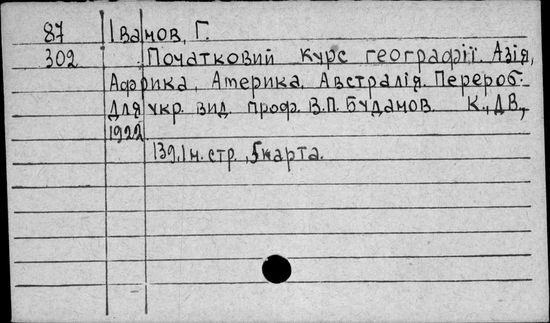 87 Іванов, Г.
302 Початковий курс географії. Азія,
Африка, Америка, Австралія. Перероб.
для укр. вид. проф. В.П. Буданов. К., ДВ,
1922.
139, 1 н. стр., 5 карта.